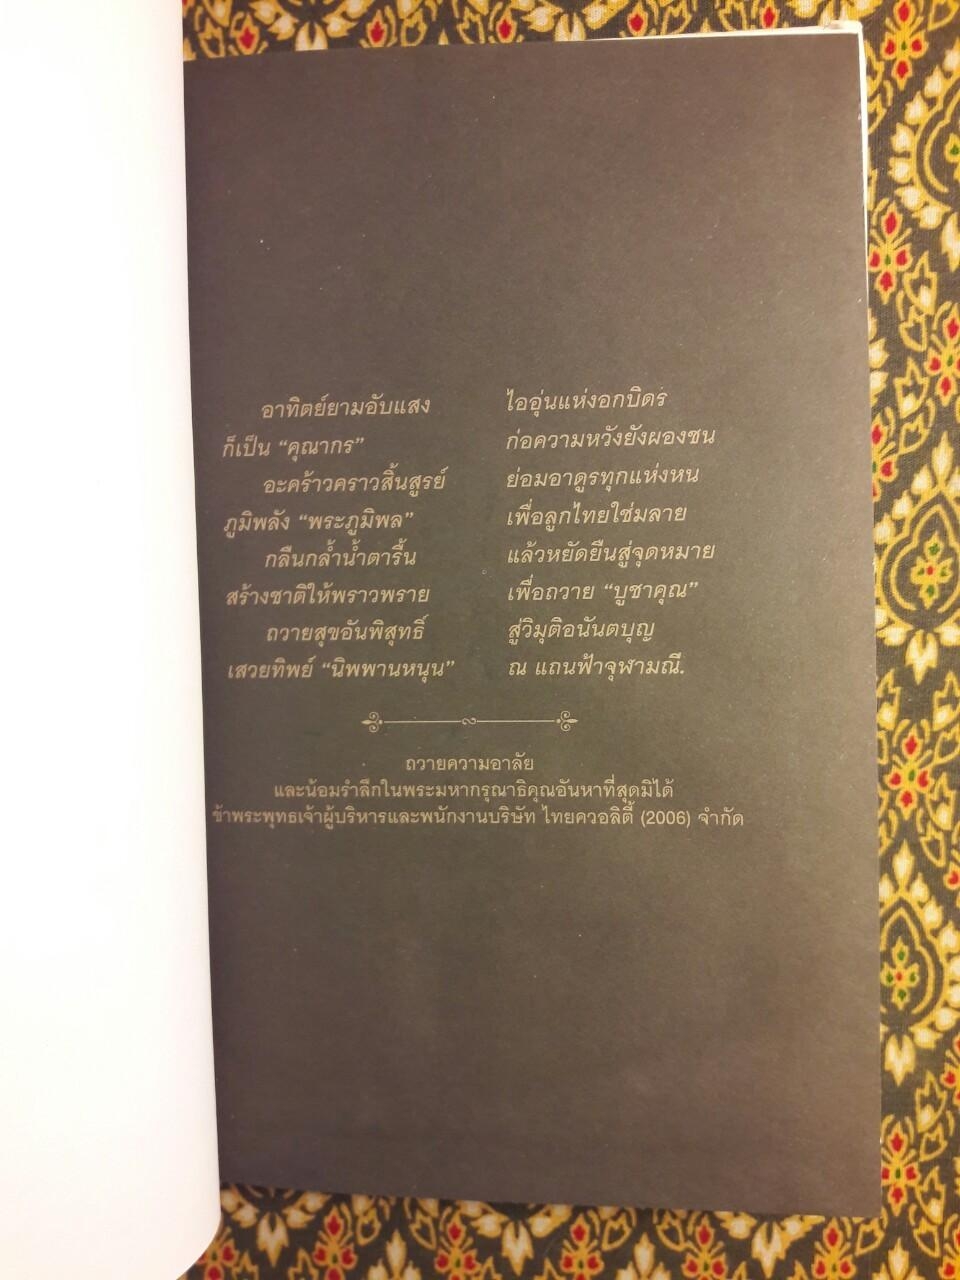 อาทิตย์ยามอับแสง ไออุ่นแห่งอกบิดร
ก็เป็น “คุณากร” ก่อความหวังยังผองชน
อะคร้าวคราวสิ้นสูรย์ ย่อมอาดูรทุกแห่งหน
ภูมิพลัง “พระภูมิพล” เพื่อลูกไทยใช่มลาย
กลืนกล้ำน้ำตารื้น แล้วหยัดยืนสู่จุดหมาย
สร้างชาติให้พราวพราย เพื่อถวาย “บูชาคุณ”
ถวายสุขอันพิสุทธิ์ สู่วิมุติอนันตบุญ
เสวยทิพย์ “นิพพานหนุน” ณ แถนฟ้าจุฬามณี.
ถวายความอาลัย
และน้อมรำลึกในพระมหากรุณาธิคุณอันหาที่สุดมิได้
ข้าพระพุทธเจ้าผู้บริหารและพนักงานบริษัท ไทยควอลิตี้ (2006) จำกัด